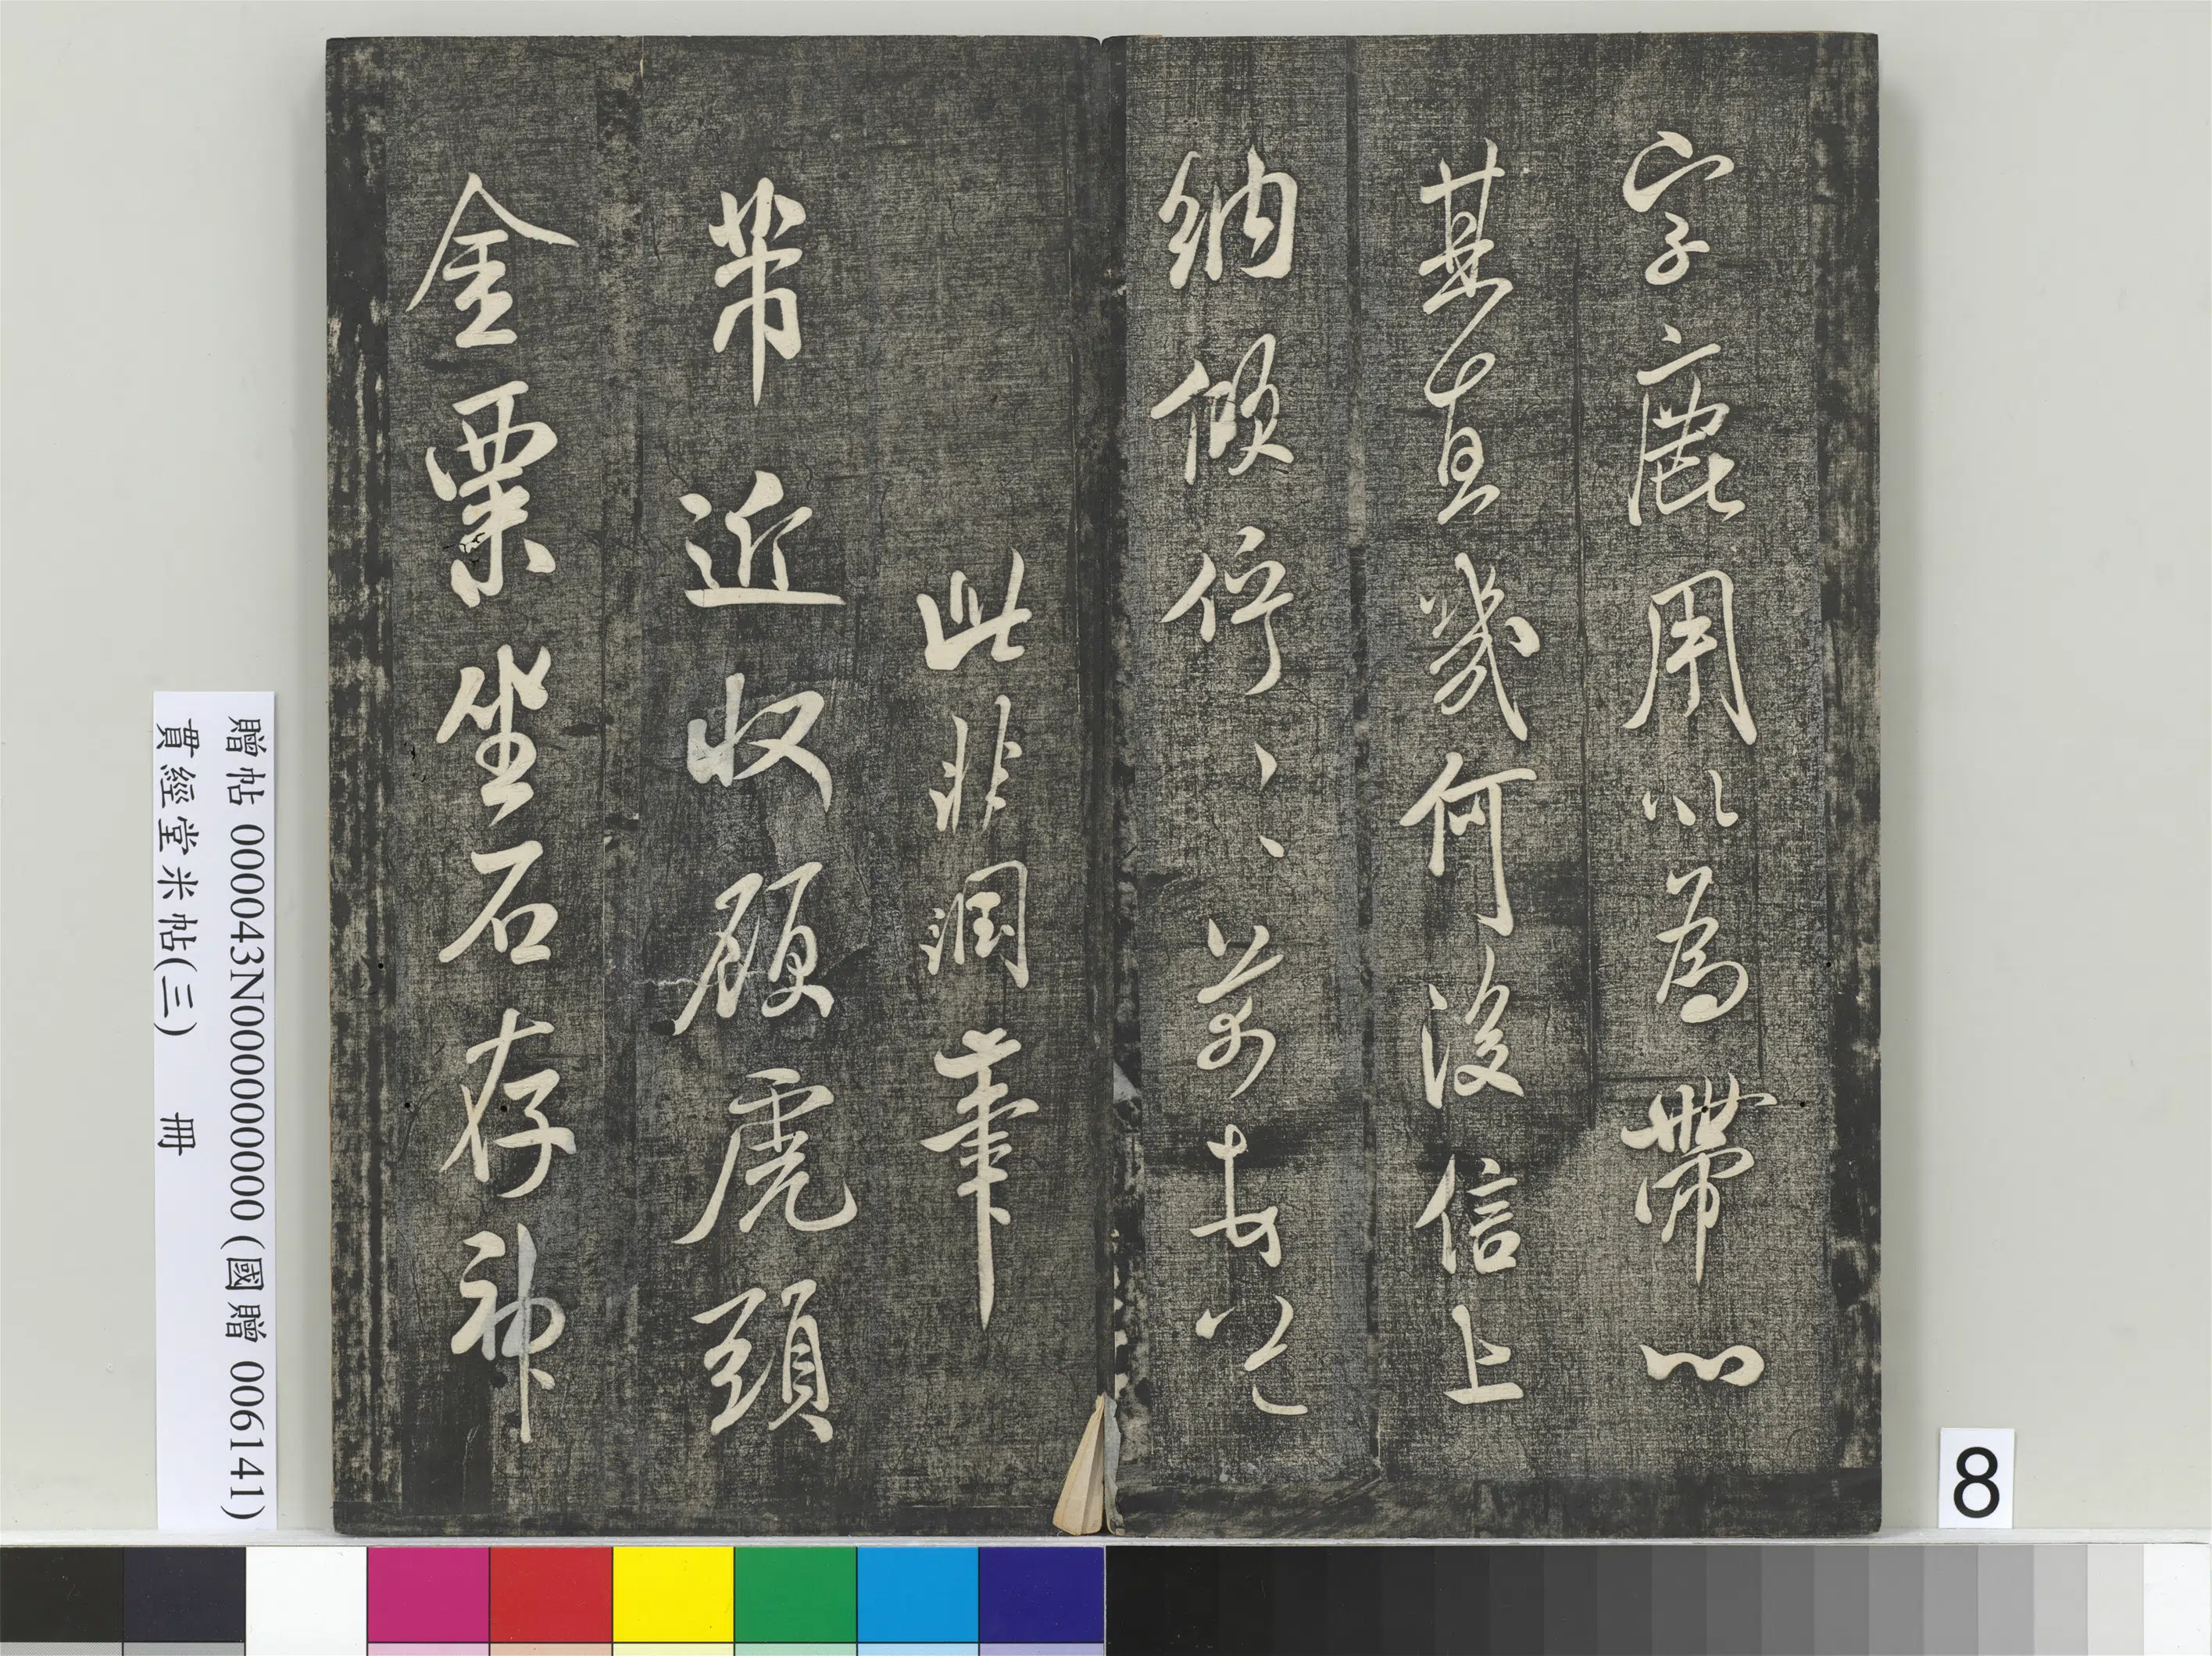 字鹿用以為帶心
某直幾何後信上
納傾佇〻〻
此非潤筆
芾近收顧虎頭
金粟坐石存神
贈帖 000043N000000000 (國贈 006141)
貫經堂米帖(三) 冊
8